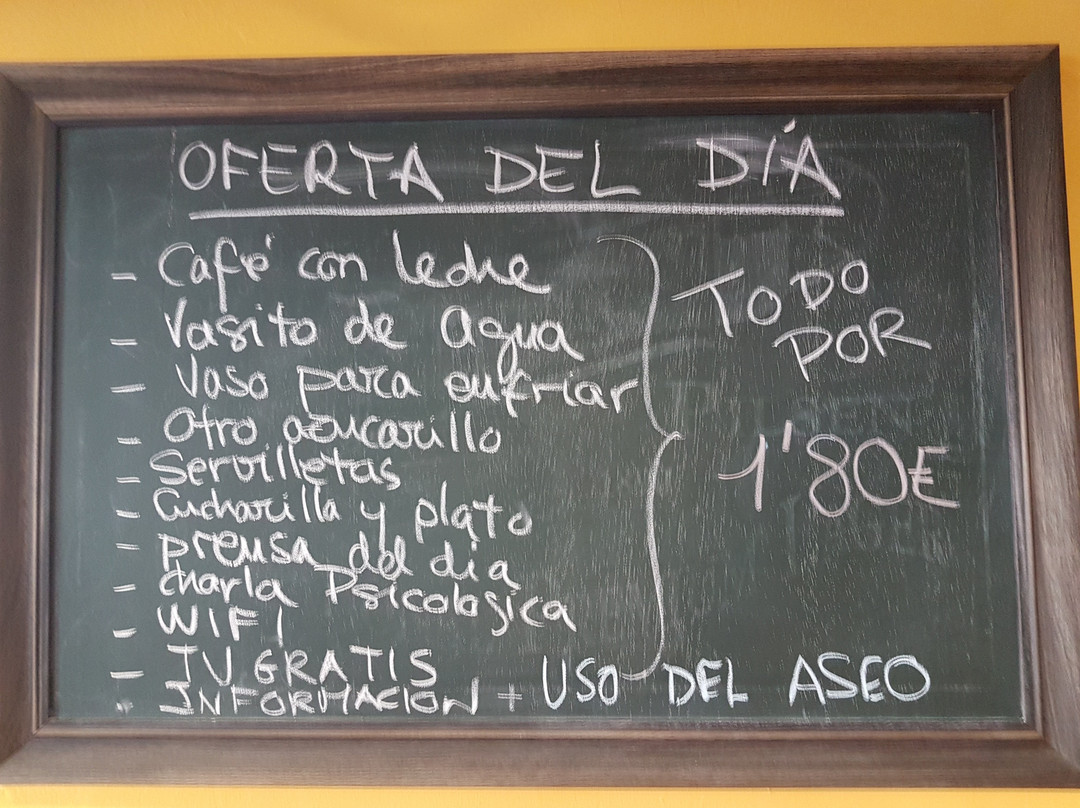 OFERTA DEL DÍA
- Café con leche
- Vasito de agua
- Vaso para enfriar
- Otro azucarillo
- Servilletas
- Cucharilla y plato
- prensa del dia
- charla Psicologica
- WIFI
- TV GRATIS
- INFORMACION + USO DEL ASEO
TODO
POR
1'80€